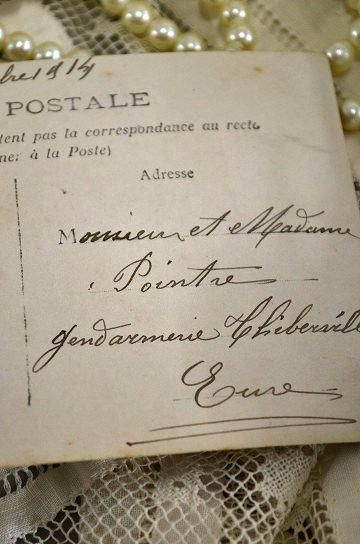 bre 1914
POSTALE
tent pas la correspondance au recto
ner à la Poste)
Adresse
Monsieur et Madame
Pointre
gendarmerie Thiberville
Eure